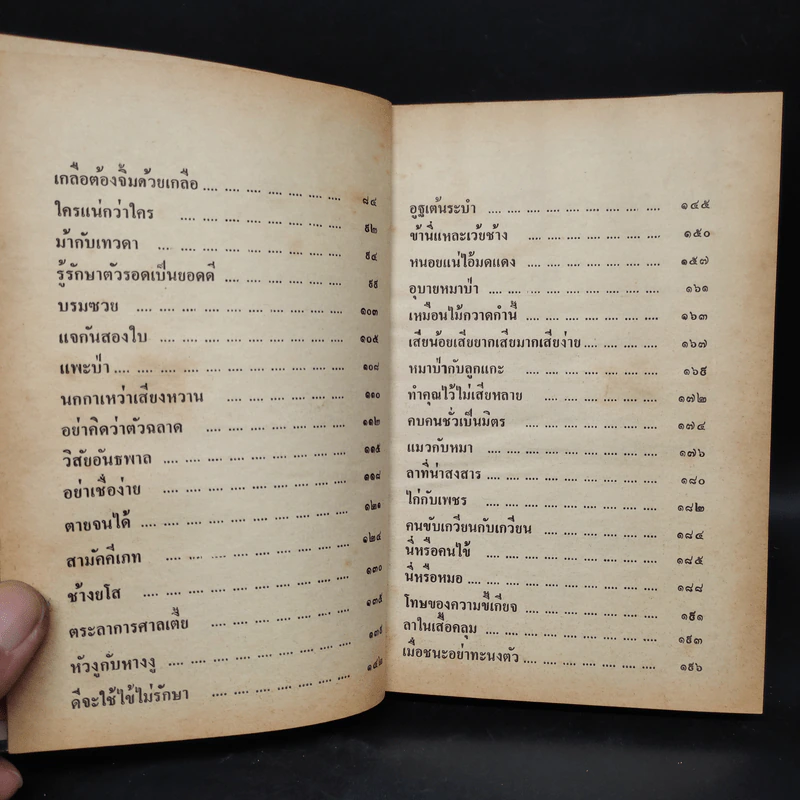 เกลือต้องจิ้มด้วยเกลือ .... .... .... .... .... .... .... ๘๔
ใครแน่กว่าใคร .... .... .... .... .... .... .... ๙๒
ม้ากับเทวดา .... .... .... .... .... .... .... .... ๙๔
รู้รักษาตัวรอดเป็นยอดดี .... .... .... .... .... .... ๙๙
บรมซวย .... .... .... .... .... .... .... .... ๑๐๓
แจกันสองใบ .... .... .... .... .... .... .... .... ๑๐๕
แพะป่า .... .... .... .... .... .... .... .... .... ๑๐๘
นกกาเหว่าเสียงหวาน .... .... .... .... .... .... ๑๑๐
อย่าคิดว่าตัวฉลาด .... .... .... .... .... .... ๑๑๒
วิสัยอันธพาล .... .... .... .... .... .... .... .... ๑๑๕
อย่าเชื่อง่าย .... .... .... .... .... .... .... .... ๑๑๘
ตายจนได้ .... .... .... .... .... .... .... .... ๑๒๑
สามัคคีเภท .... .... .... .... .... .... .... ๑๒๔
ช้างยโส .... .... .... .... .... .... .... .... ๑๓๐
ตระลาการศาลเตี้ย .... .... .... .... .... .... ๑๓๕
หัวงูกับหางงู .... .... .... .... .... .... .... ๑๓๙
ดีจะใช้ไข้ไม่รักษา .... .... .... .... .... .... ๑๔๒
อูฐเต้นระบำ .... .... .... .... .... .... .... .... ๑๔๕
ข้านี่แหละเว้ยช้าง .... .... .... .... .... .... .... ๑๕๐
หนอยแน่ไอ้มดแดง .... .... .... .... .... .... .... ๑๕๗
อุบายหมาป่า .... .... .... .... .... .... .... .... ๑๖๑
เหมือนไม้กวาดกำนี้ .... .... .... .... .... .... .... ๑๖๓
เสียน้อยเสียยากเสียมากเสียง่าย .... .... .... .... ๑๖๗
หมาป่ากับลูกแกะ .... .... .... .... .... .... .... ๑๖๙
ทำคุณไว้ไม่เสียหลาย .... .... .... .... .... .... ๑๗๒
คบคนชั่วเป็นมิตร .... .... .... .... .... .... .... ๑๗๔
แมวกับหมา .... .... .... .... .... .... .... .... ๑๗๖
ลาที่น่าสงสาร .... .... .... .... .... .... .... .... ๑๘๐
ไก่กับเพชร .... .... .... .... .... .... .... .... ๑๘๒
คนขับเกวียนกับเกวียน .... .... .... .... .... .... ๑๘๔
นี่หรือคนไข้ .... .... .... .... .... .... .... .... ๑๘๕
นี่หรือหมอ .... .... .... .... .... .... .... .... ๑๘๘
โทษของความขี้เกียจ .... .... .... .... .... .... ๑๙๑
ลาในเสื้อคลุม .... .... .... .... .... .... .... .... ๑๙๓
เมื่อชนะอย่าทะนงตัว .... .... .... .... .... .... ๑๙๖